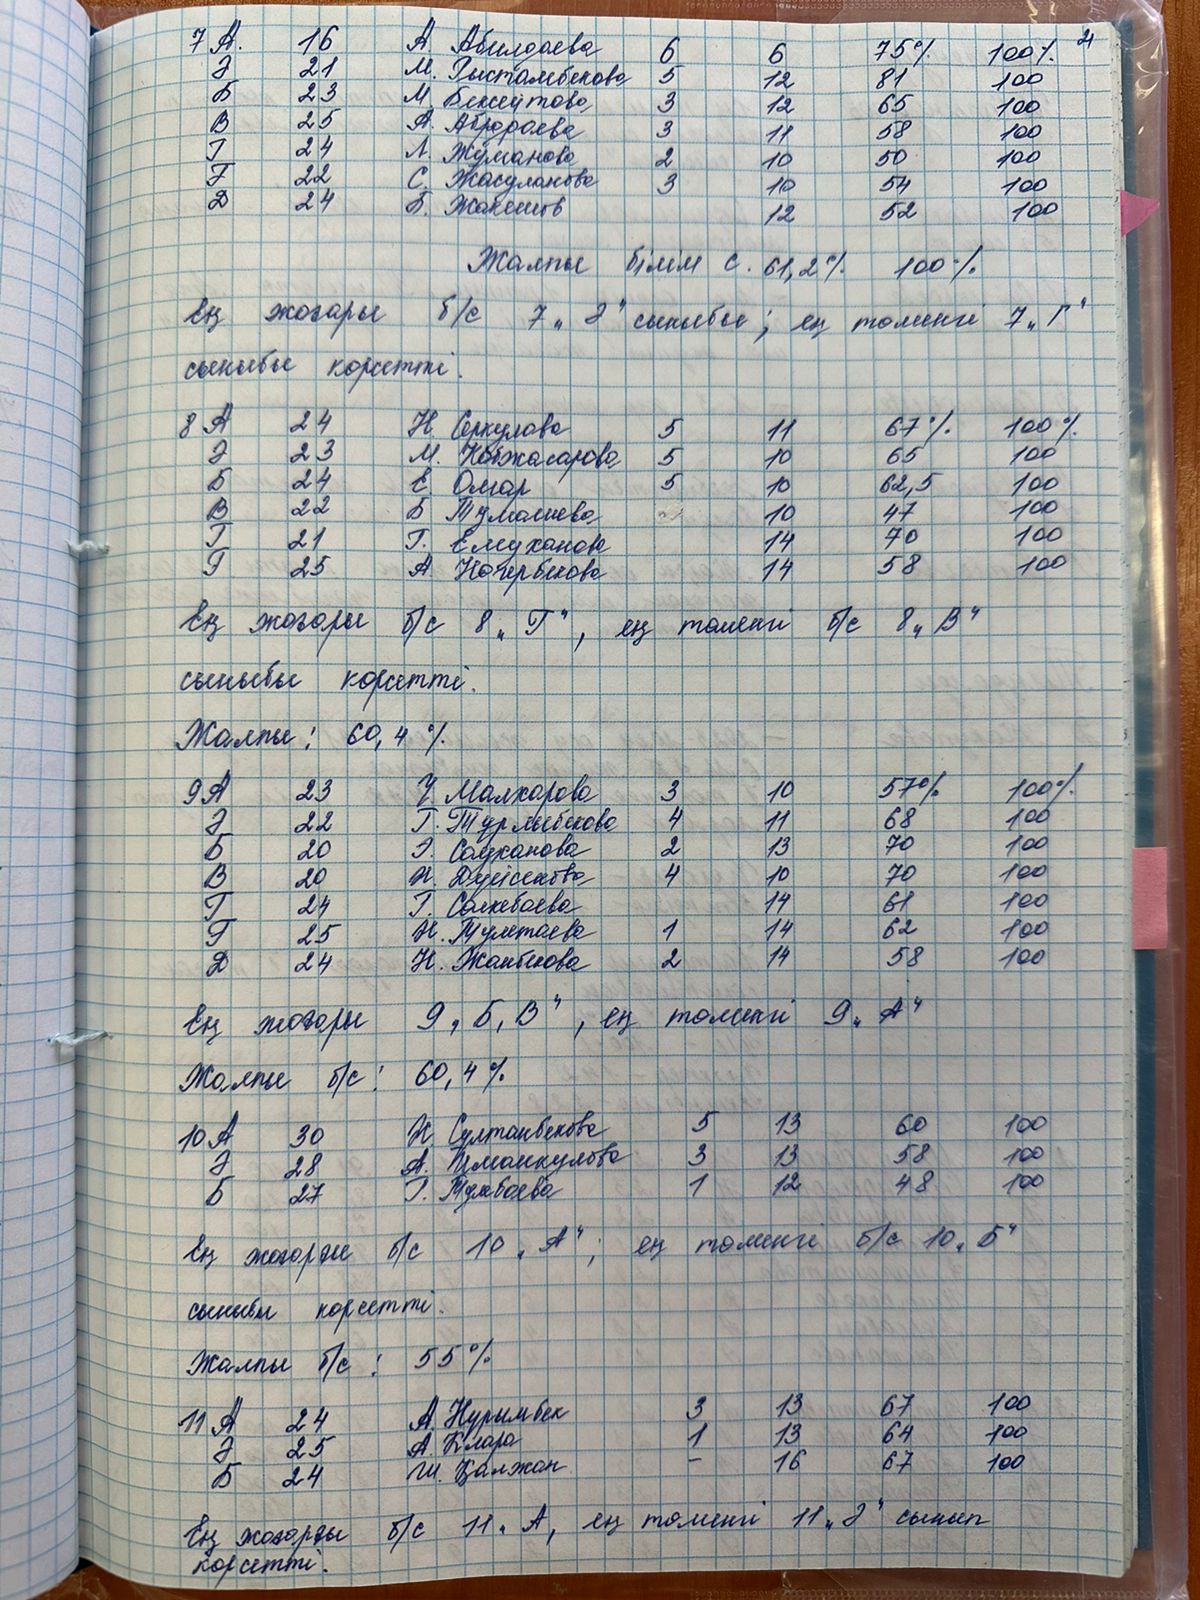 4
7 А. 16 А Абилдаева 6 6 75% 100%
Ә 21 М. Рыстамбекова 5 12 81 100
Б 23 М. Бексейтова 3 12 65 100
В 25 А. Абдраева 3 11 58 100
Г 24 Л. Жуманова 2 10 50 100
Ғ 22 С. Жасуланова 3 10 54 100
Д 24 Б. Жакешов 12 52 100
Жалпы білім с. 61,2% 100%
Ең жоғары б/с 7 „Ә" сыныбы; ең төменгі 7 „Г"
сыныбы көрсетті.
8 А 24 Н Серкулова 5 11 67% 100%
Ә 23 М. Қожасарова 5 10 65 100
Б 24 Е Омар 5 10 62,5 100
В 22 Б Тумашева 10 47 100
Г 21 Г. Емуханова 14 70 100
Ғ 25 А 14 58 100
Ең жоғары б/с 8 „Г", ең төменгі б/с 8 „В"
сыныбы көрсетті.
Жалпы: 60,4%
9 А 23 Ұ Малкарова 3 10 57% 100%
Ә 22 Г. Турлыбекова 4 11 68 100
Б 20 Э. Сауханова 2 13 70 100
В 20 Н. Дуйсенова 4 10 70 100
Г 24 Г. Салкебаева 14 61 100
Ғ 25 Н. Тулетаева 1 14 62 100
Д 24 Н. Жанбекова 2 14 58 100
Ең жоғары 9 „Б, В", ең төменгі 9 „А"
Жалпы б/с: 60,4%
10 А 30 Н. Султанбекова 5 13 60 100
Ә 28 А. Иманкулова 3 13 58 100
Б 27 Г. Тумбаева 1 12 48 100
Ең жоғарғы б/с 10 „А"; ең төменгі б/с 10 „Б"
сыныбы көрсетті.
Жалпы б/с: 55%
11 А 24 А. Нурымбек 3 13 67 100
Ә 25 А. Клара 1 13 64 100
Б 24 Ш. Қалжан - 16 67 100
Ең жоғарғы б/с 11 „А, ең төменгі 11 „Ә" сынып
көрсетті.